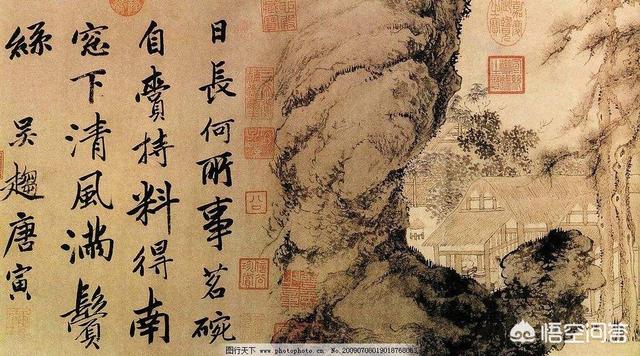 日長何所事茗碗
自賫持料得南
窓下清風滿鬢
絲 吳趨唐寅
图行天下 www.photophoto.cn
悟空问答